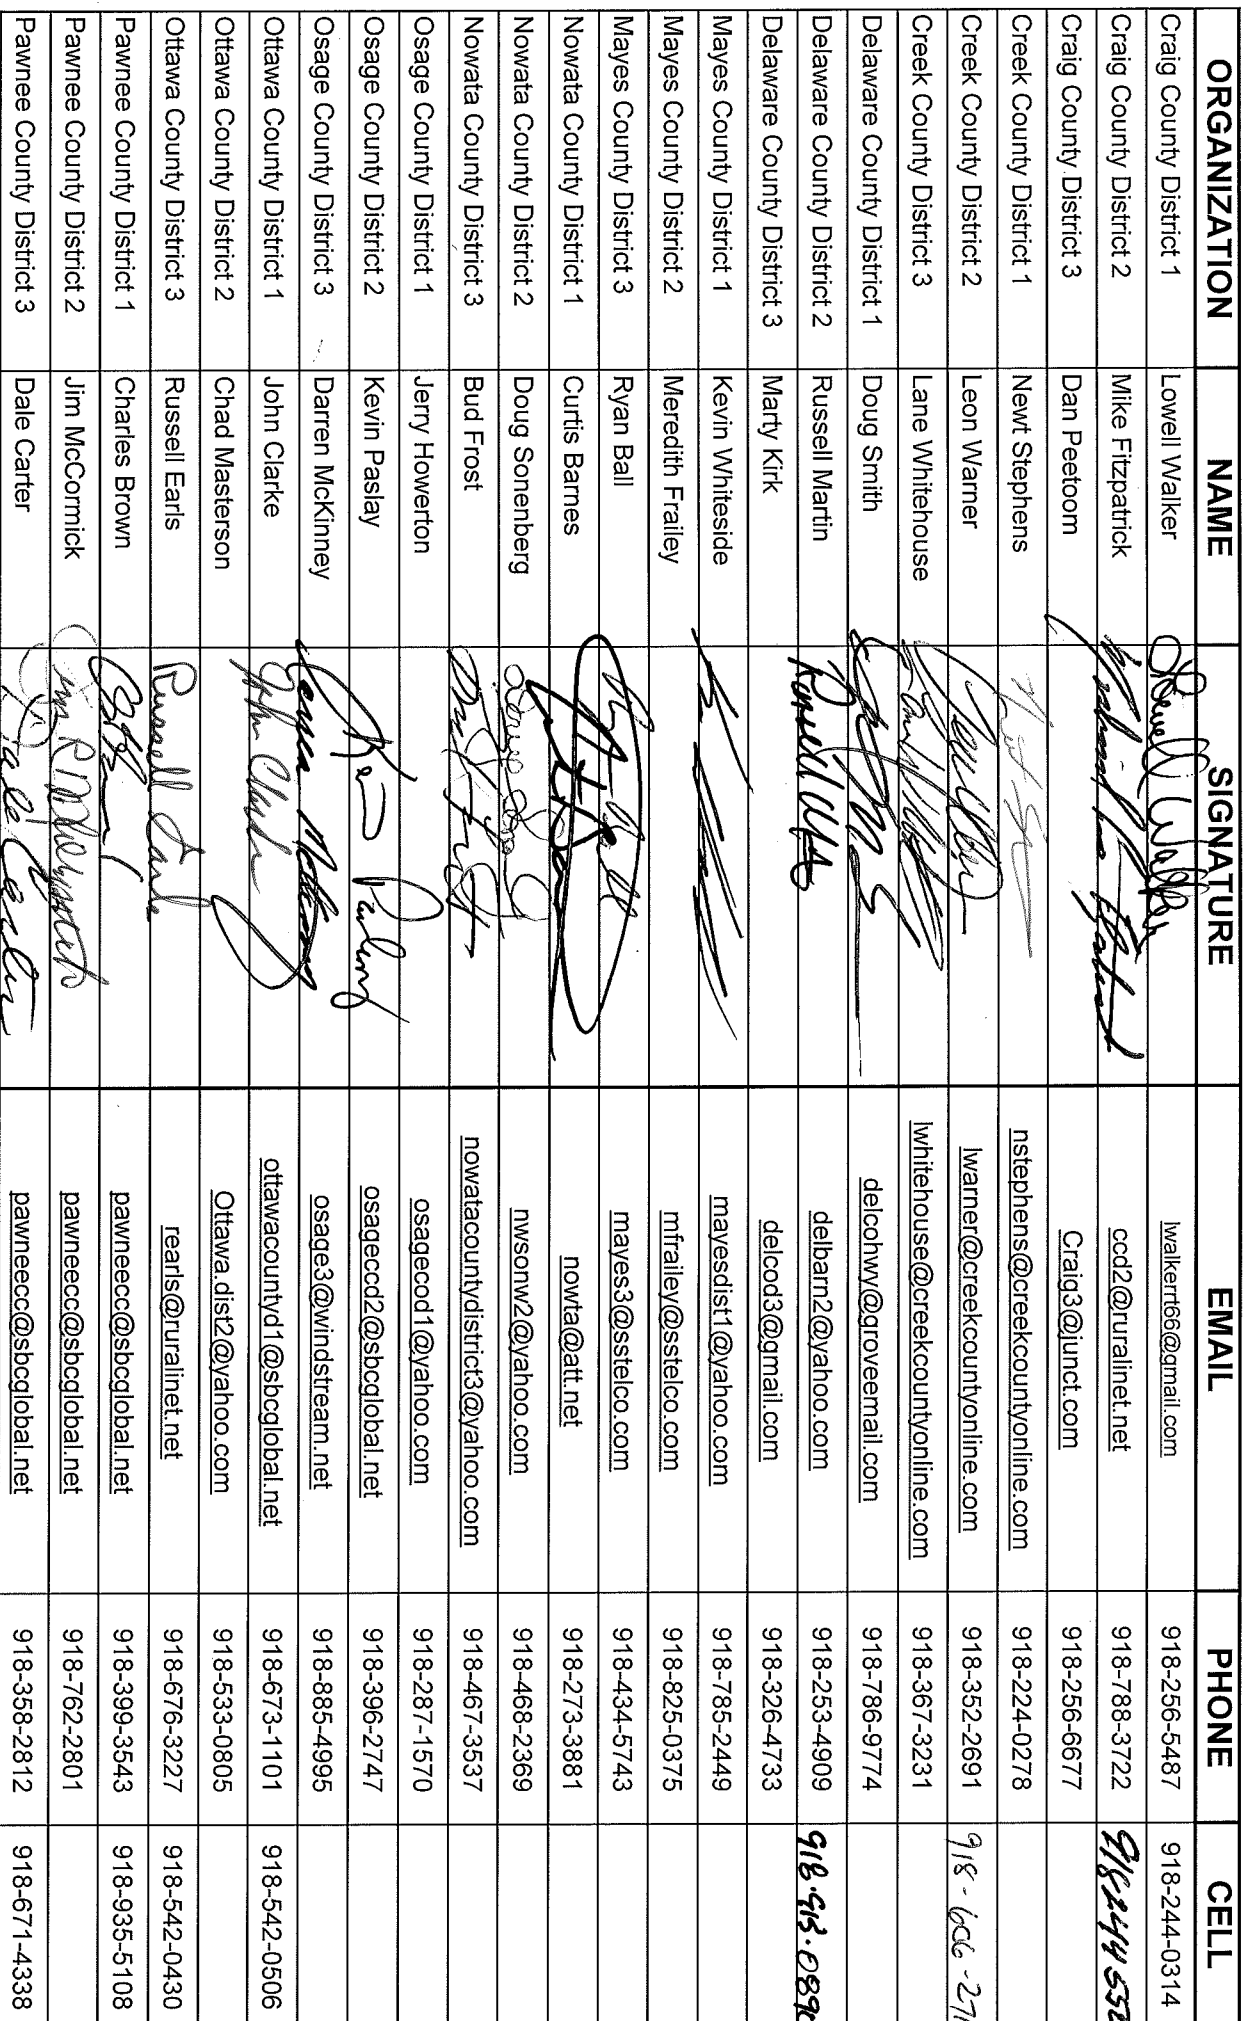 ORGANIZATION NAME SIGNATURE EMAIL PHONE CELL
Craig County District 1 Lowell Walker Lowell Walker lwalkerrt66@gmail.com 918-256-5487 918-244-0314
Craig County District 2 Mike Fitzpatrick ccd2@ruralinet.net 918-788-3722
Craig County District 3 Dan Peetoom Craig3@junct.com 918-256-6677
Creek County District 1 Newt Stephens nstephens@creekcountyonline.com 918-224-0278
Creek County District 2 Leon Warner lwarner@creekcountyonline.com 918-352-2691 918-606-271
Creek County District 3 Lane Whitehouse lwhitehouse@creekcountyonline.com 918-367-3231
Delaware County District 1 Doug Smith delcohwy@groveemail.com 918-786-9774
Delaware County District 2 Russell Martin delbarn2@yahoo.com 918-253-4909
Delaware County District 3 Marty Kirk delcod3@gmail.com 918-326-4733
Mayes County District 1 Kevin Whiteside mayesdist1@yahoo.com 918-785-2449
Mayes County District 2 Meredith Frailey mfrailey@sstelco.com 918-825-0375
Mayes County District 3 Ryan Ball Ryan Ball mayes3@sstelco.com 918-434-5743
Nowata County District 1 Curtis Barnes nowta@att.net 918-273-3881
Nowata County District 2 Doug Sonenberg nwsonw2@yahoo.com 918-468-2369
Nowata County District 3 Bud Frost nowatacountydistrict3@yahoo.com 918-467-3537
Osage County District 1 Jerry Howerton osagecod1@yahoo.com 918-287-1570
Osage County District 2 Kevin Paslay osageccd2@sbcglobal.net 918-396-2747
Osage County District 3 Darren McKinney osage3@windstream.net 918-885-4995
Ottawa County District 1 John Clarke John Clarke ottawacountyd1@sbcglobal.net 918-673-1101 918-542-0506
Ottawa County District 2 Chad Masterson Ottawa.dist2@yahoo.com 918-533-0805
Ottawa County District 3 Russell Earls Russell Earls rearls@ruralinet.net 918-676-3227 918-542-0430
Pawnee County District 1 Charles Brown pawneecc@sbcglobal.net 918-399-3543 918-935-5108
Pawnee County District 2 Jim McCormick pawneecc@sbcglobal.net 918-762-2801
Pawnee County District 3 Dale Carter Dale Carter pawneecc@sbcglobal.net 918-358-2812 918-671-4338